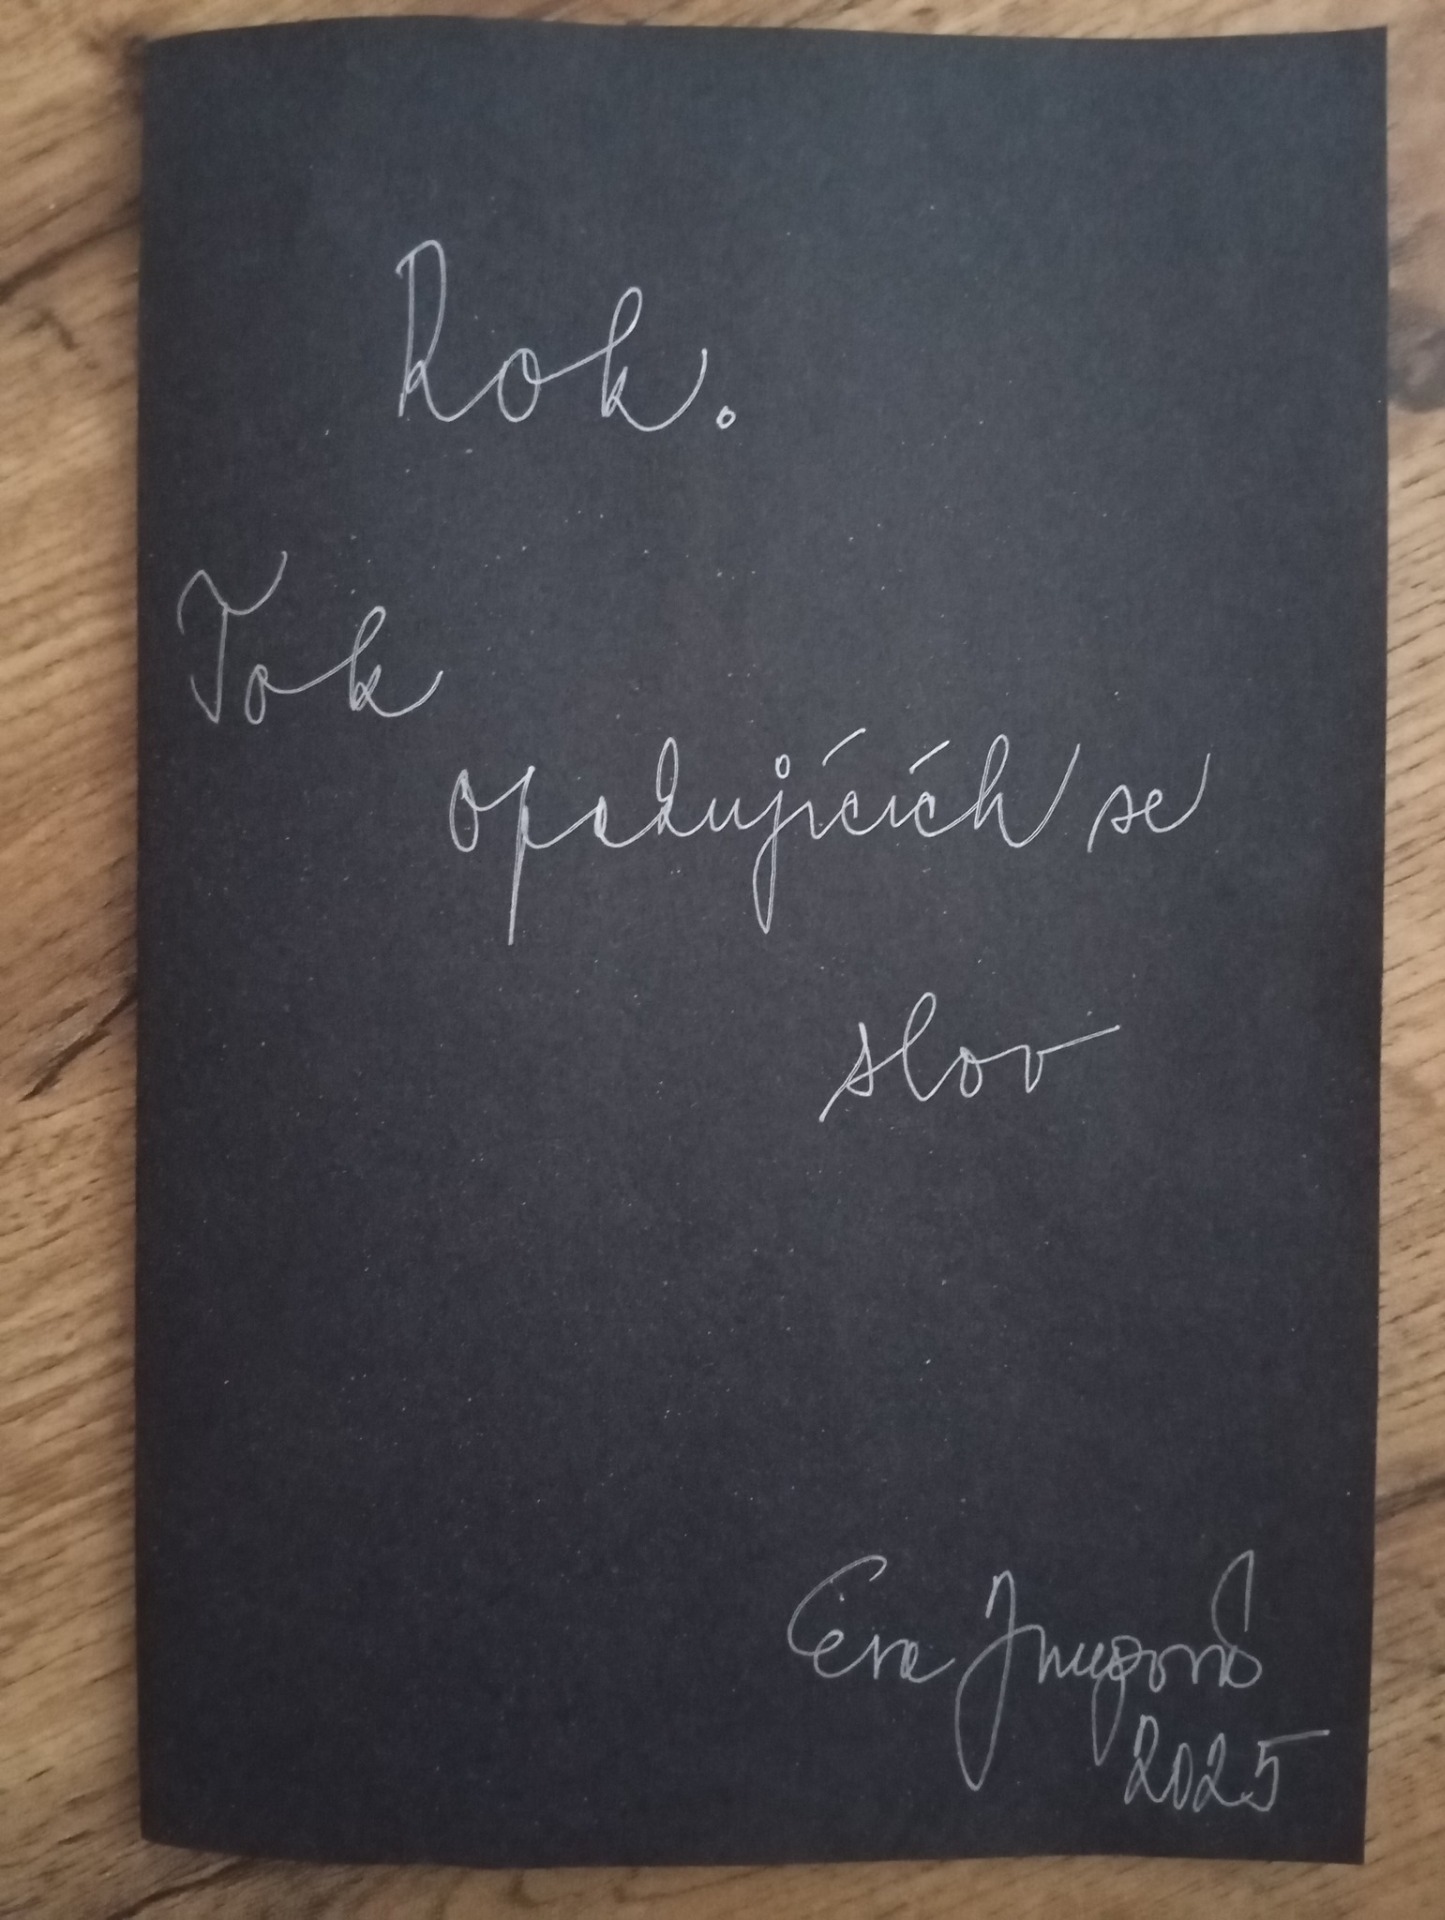 Rok.
Tok
opakujících se
slov
Eva
2025